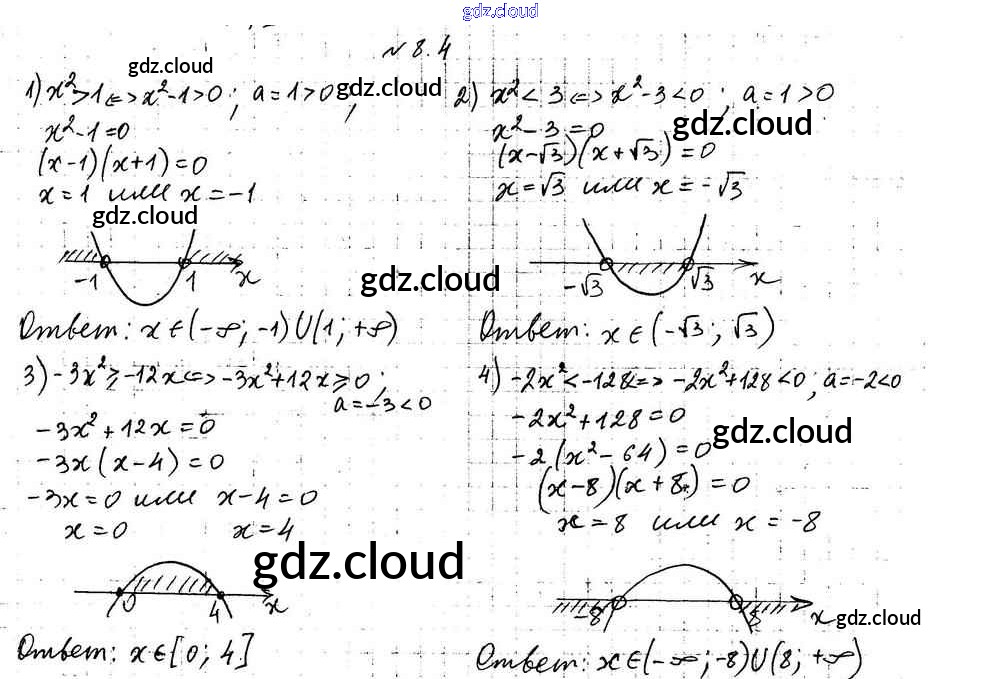 gdz.cloud
№ 8.4
gdz.cloud
1) x²>1 <=> x²-1>0; a=1>0;
gdz.cloud
x²-1=0
(x-1)(x+1)=0
x=1 или x=-1
gdz.cloud
-1 1 x
Ответ: x∈(-∞;-1)∪(1;+∞)
2) x²<3 <=> x²-3<0; a=1>0
gdz.cloud
x²-3=0
(x-√3)(x+√3)=0
x=√3 или x=-√3
gdz.cloud
-√3 √3 x
Ответ: x∈(-√3; √3)
3) -3x²≥-12x <=> -3x²+12x≥0;
a=-3<0
-3x²+12x=0
-3x(x-4)=0
-3x=0 или x-4=0
x=0 x=4
gdz.cloud
0 4 x
Ответ: x∈[0; 4]
4) -2x²<-128 <=> -2x²+128<0; a=-2<0
-2x²+128=0
gdz.cloud
-2(x²-64)=0
(x-8)(x+8)=0
x=8 или x=-8
-8 8 x
gdz.cloud
Ответ: x∈(-∞;-8)∪(8;+∞)